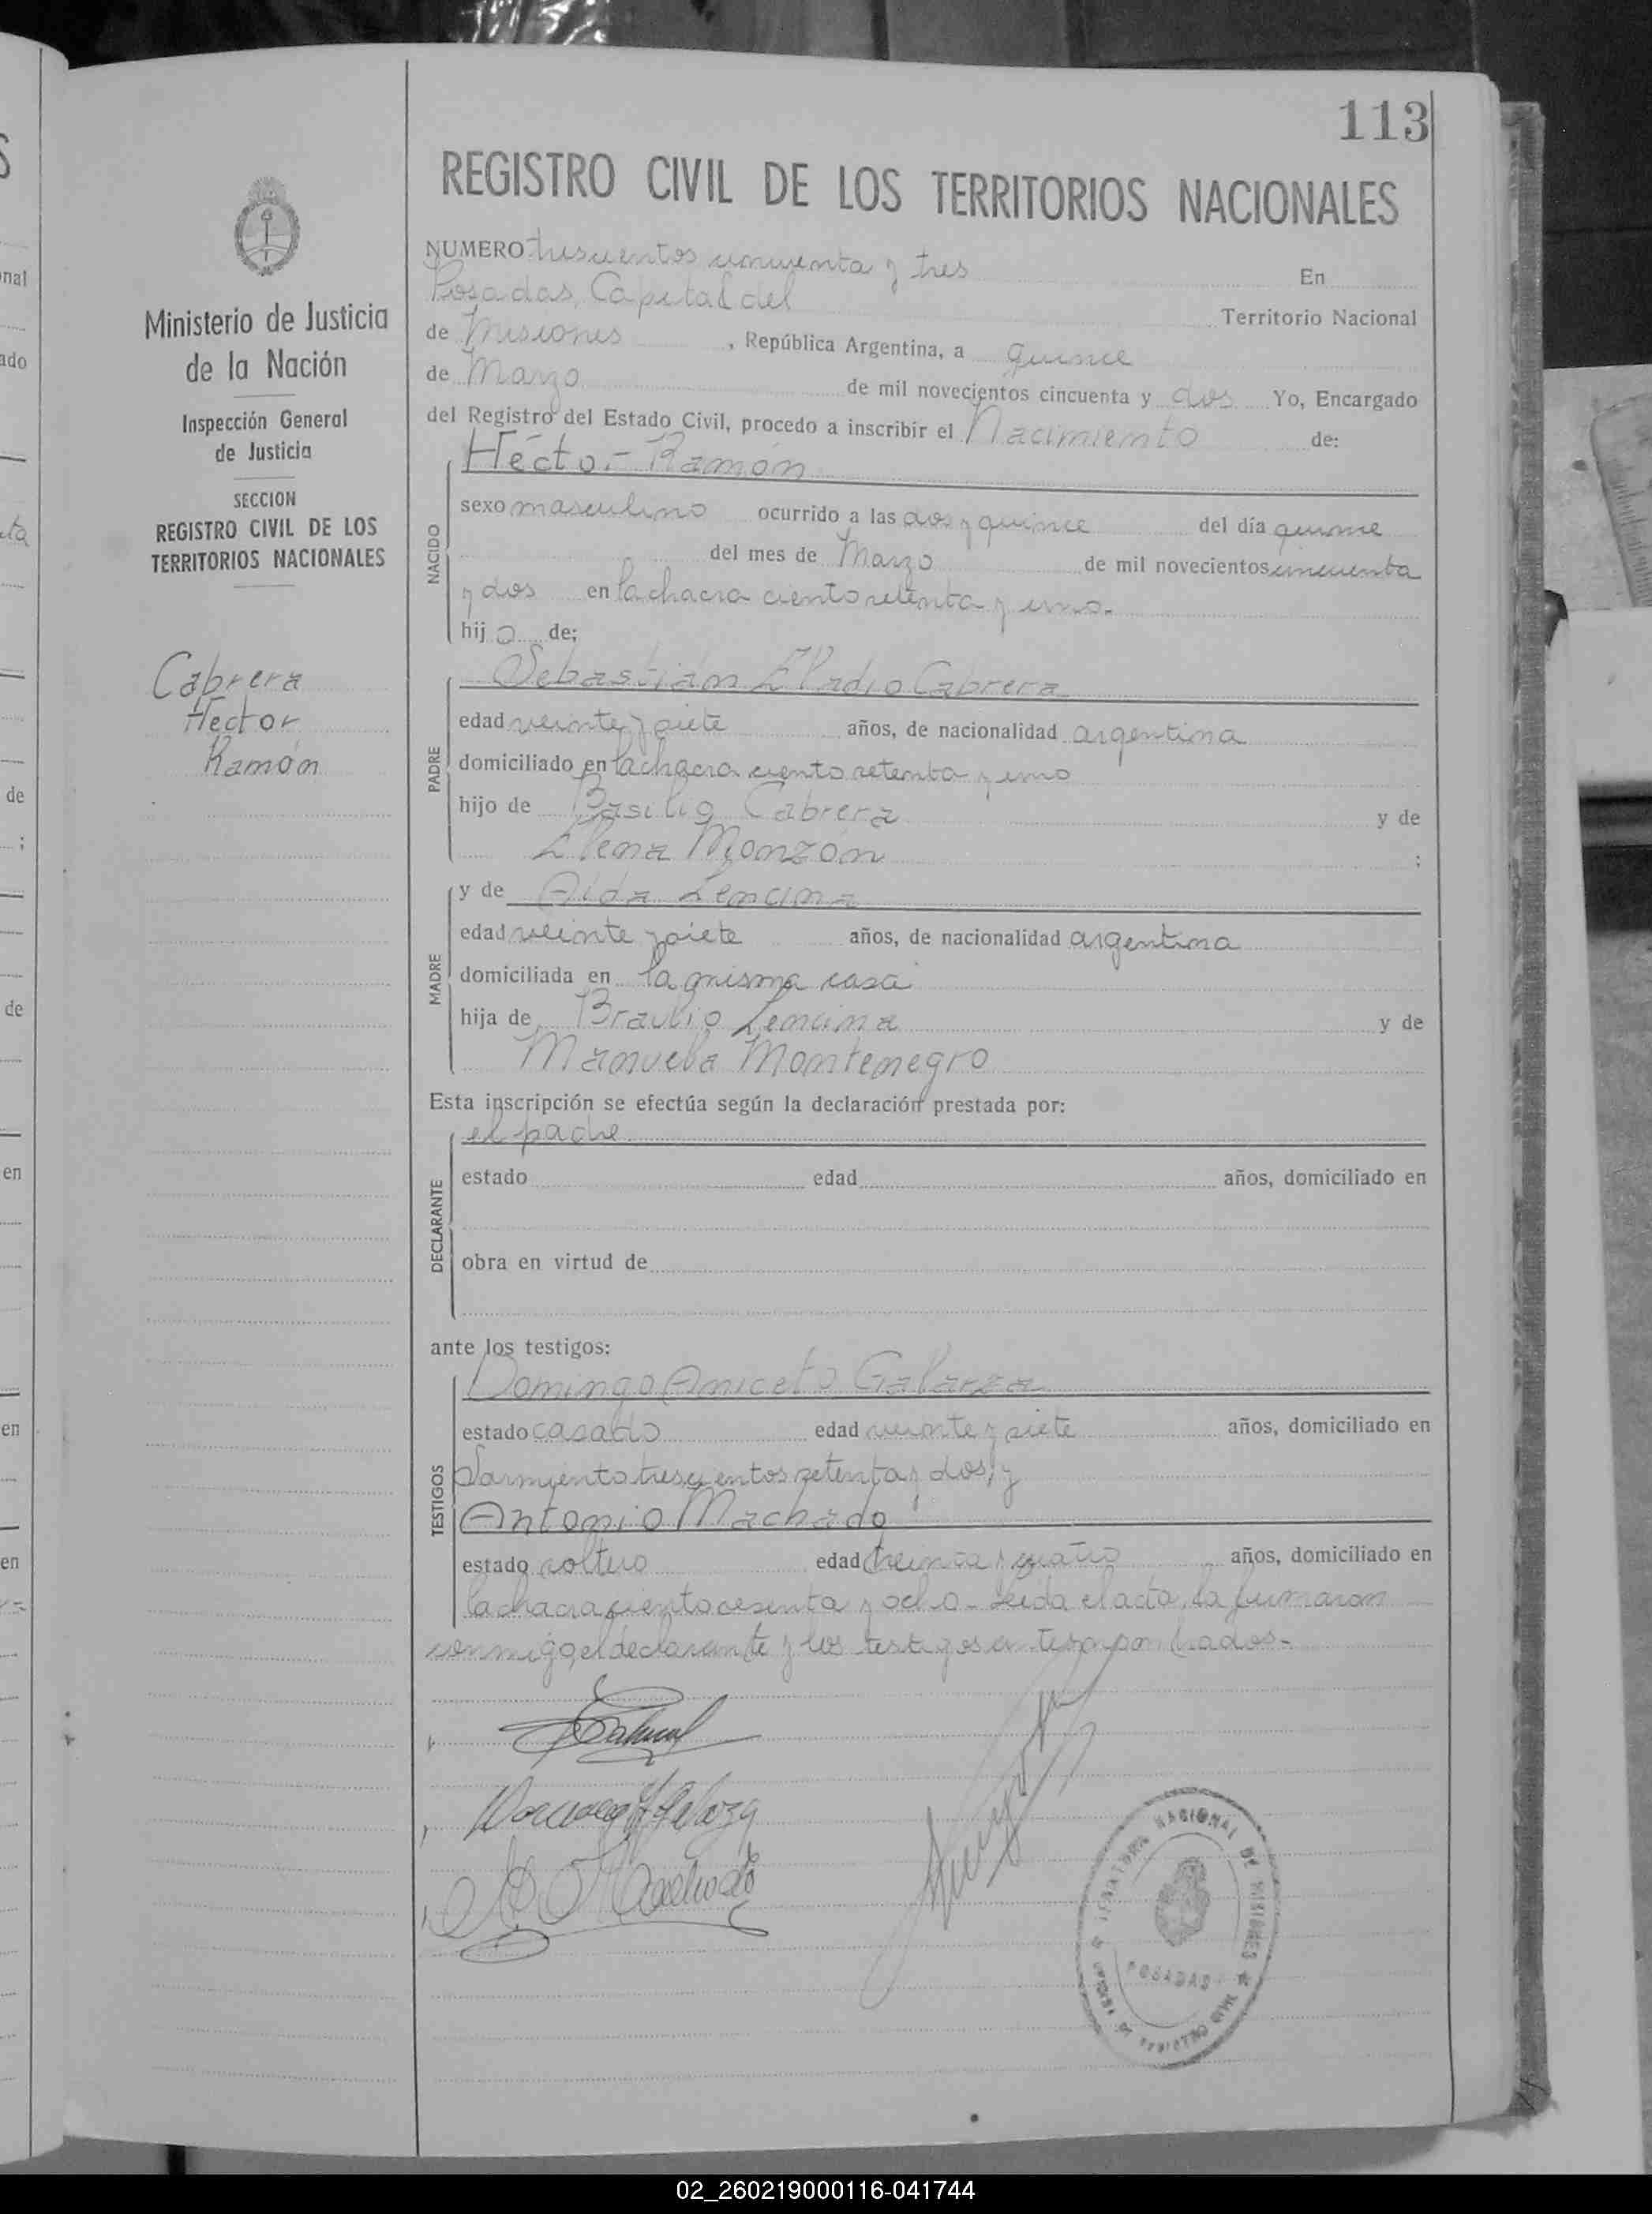 113
REGISTRO CIVIL DE LOS TERRITORIOS NACIONALES
NUMERO trescientos cincuenta y tres En
Posadas, Capital del Territorio Nacional
de Misiones, República Argentina, a quince
de Marzo de mil novecientos cincuenta y dos Yo, Encargado
del Registro del Estado Civil, procedo a inscribir el Nacimiento de:
Héctor- Ramón
NACIDO
sexo masculino ocurrido a las dos y quince del día quince
del mes de Marzo de mil novecientos cincuenta
y dos en la chacra ciento setenta y uno.
hijo de;
Sebastián Eladio Cabrera
PADRE
edad veinte y siete años, de nacionalidad argentina
domiciliado en la chacra ciento setenta y uno
hijo de Basilio Cabrera y de
Elena Monzón ;
y de Aida Lencina
MADRE
edad veinte y siete años, de nacionalidad argentina
domiciliada en la misma casa
hija de Braulio Lencina y de
Manuela Montenegro
Esta inscripción se efectúa según la declaración prestada por:
el padre
DECLARANTE
estado edad años, domiciliado en
obra en virtud de
ante los testigos:
Domingo Aniceto Galarza
TESTIGOS
estado casado edad veinte y siete años, domiciliado en
Sarmiento trescientos setenta y dos, y
Antonio Machado
estado soltero edad treinta y cuatro años, domiciliado en
la chacra ciento sesenta y ocho- Leida el acta, la firmaron
conmigo, el declarante y los testigos
Ministerio de Justicia
de la Nación
Inspección General
de Justicia
SECCION
REGISTRO CIVIL DE LOS
TERRITORIOS NACIONALES
Cabrera
Hector
Ramón
NACIONAL DE MISIONES
POSADAS
nal
ado
de
;
de
en
en
en
02_260219000116-041744